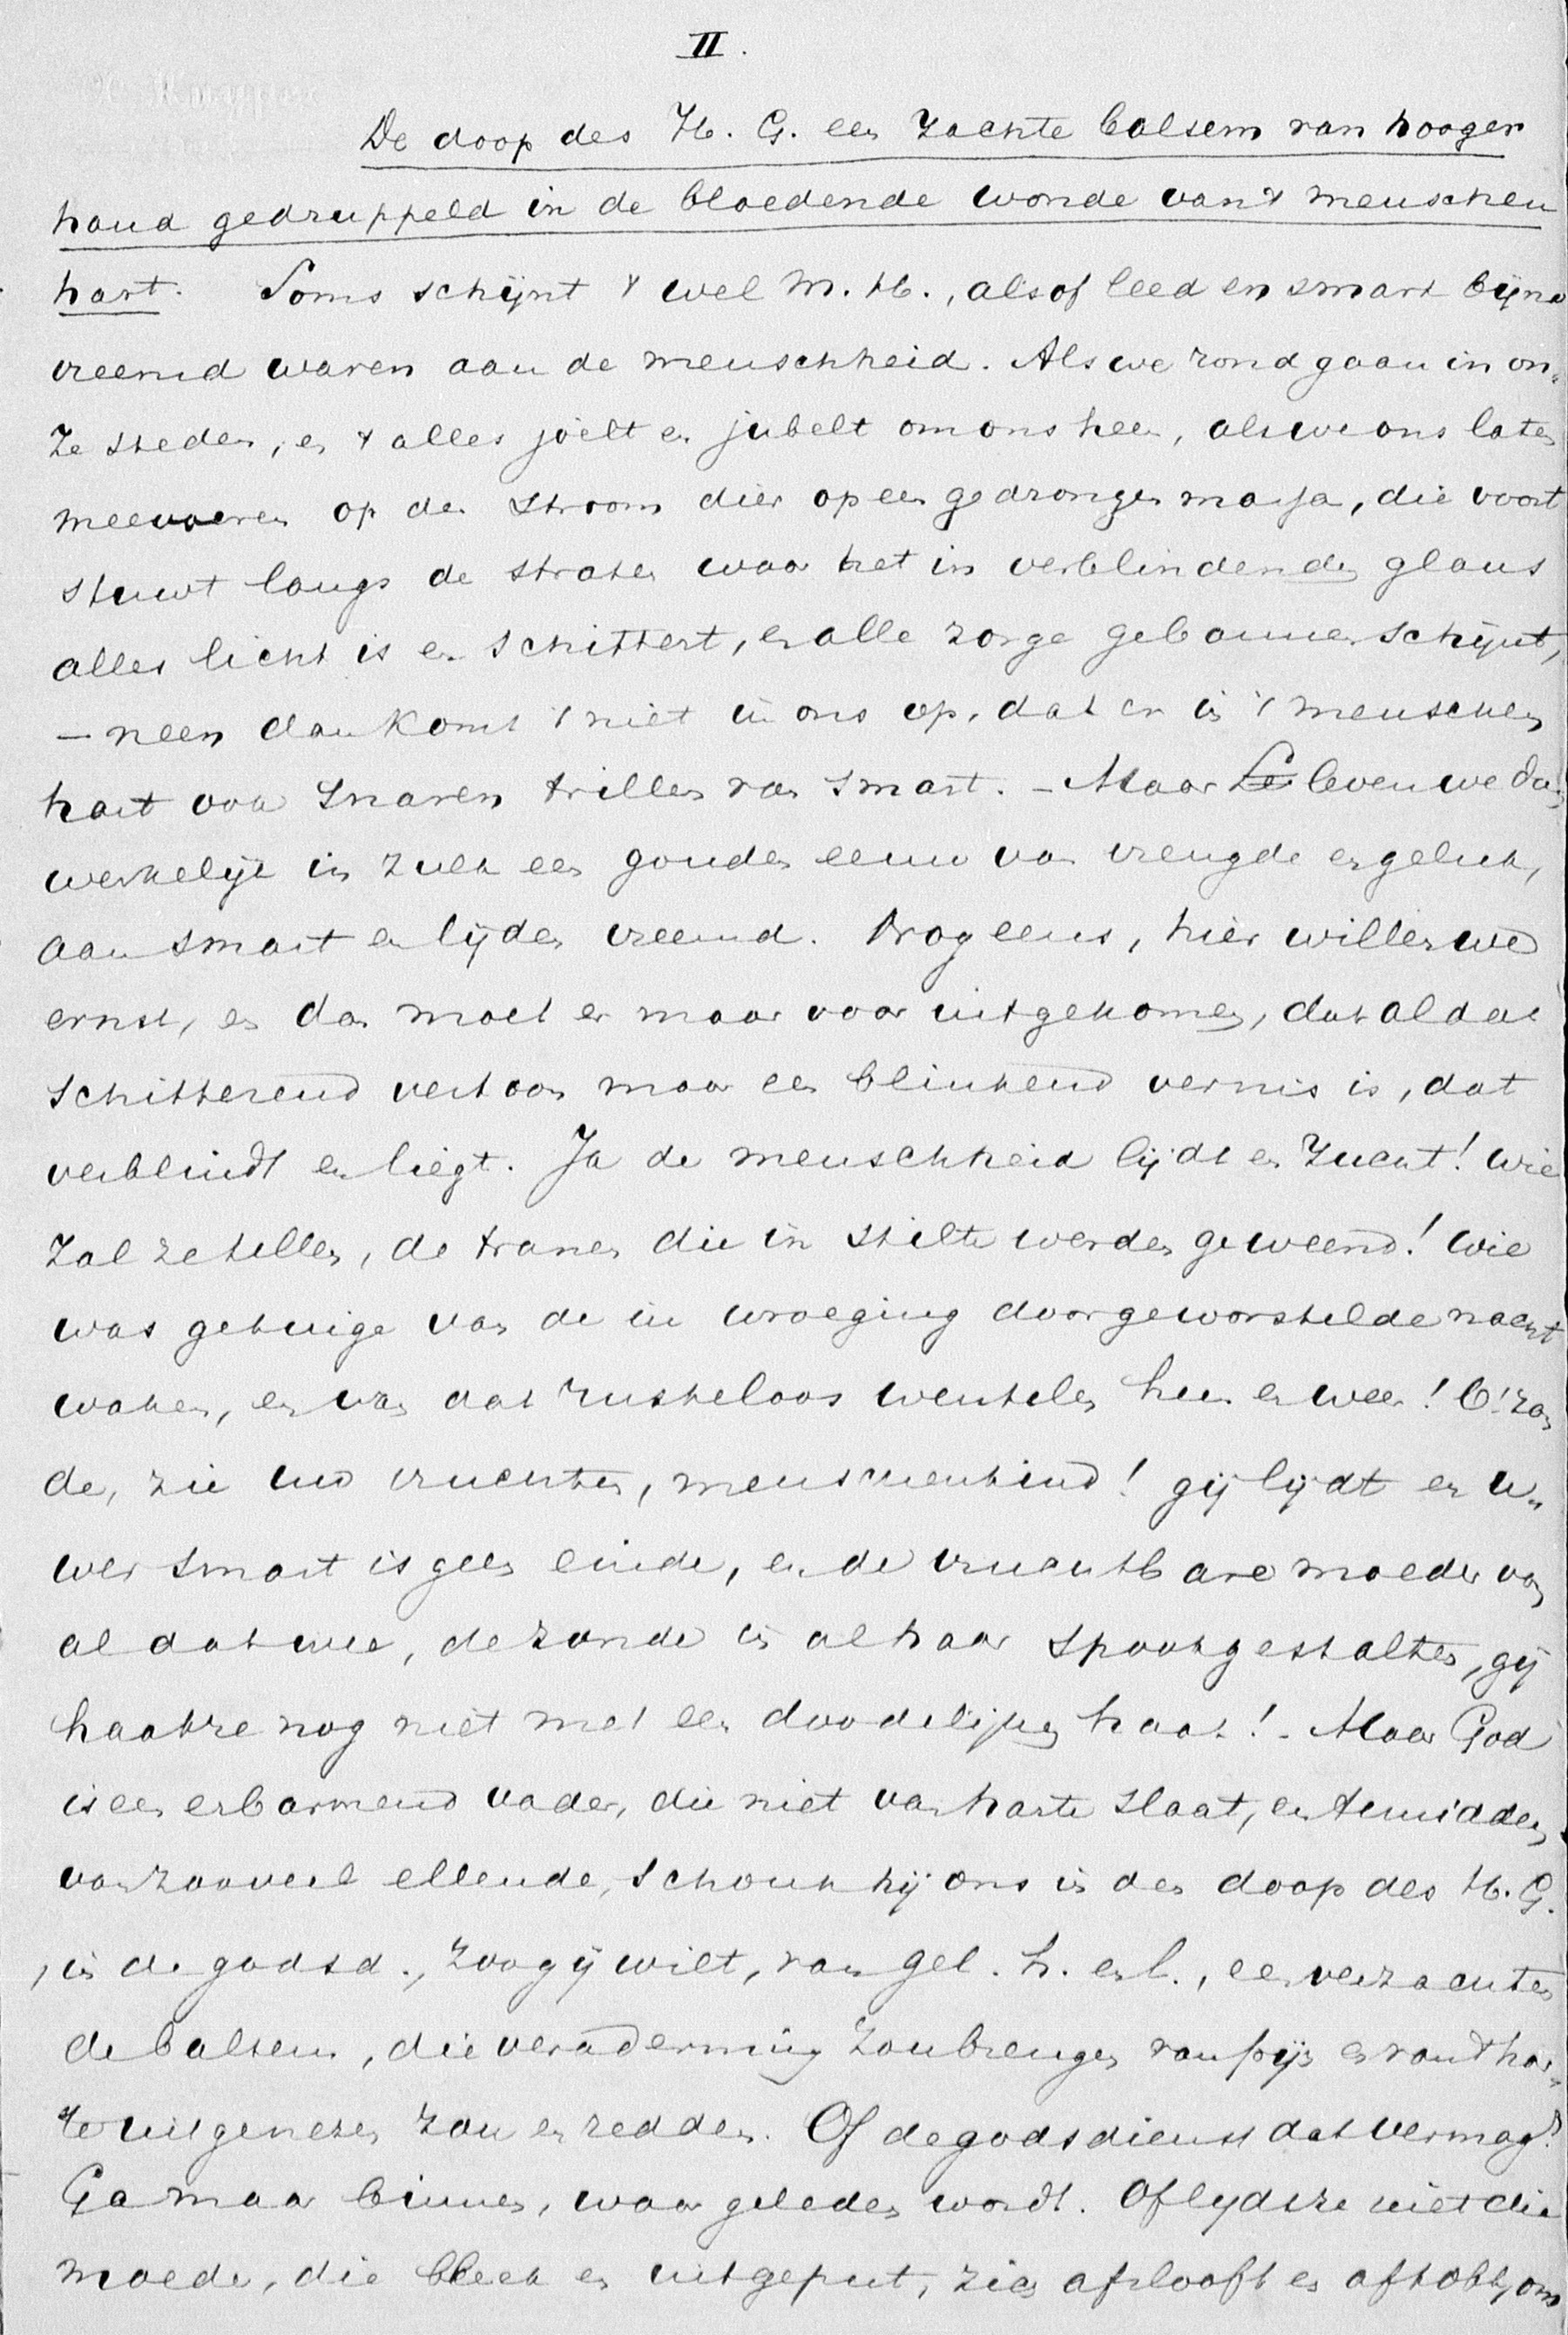 II.
De doop des H. G. een zachte balsem van hooger
hand gedruppeld in de bloedende wonde van 't menschen
hart. Soms schijnt 't wel M. H., alsof leed en smart bijna
vreemd waren aan de menschheid. Als we rond gaan in on-
ze steden, en 't alles joelt en jubelt om ons heen, als we ons laten
meevoeren op den stroom dier opeen gedrongen massa, die voort
stuwt langs de straten waar het in verblindenden glans
alles licht is en schittert, en alle zorge gebannen schijnt,
– neen dan komt 't niet in ons op, dat er in 't menschen
hart ook snaren trillen van smart. – Maar Le leven we dan
werkelijk in zulk een gouden eeuw van vreugde en geluk,
aan smart en lijden vreemd. Vrag eens, hier willen we
ernst, en dan moet er maar voor uitgekomen, dat al dat
schitterend vertoon maar een blinkend vernis is, dat
verblindt en liegt. Ja de menschheid lijdt en zucht! wie
zal ze tellen, de tranen die in stilte werden geweend! wie
was getuige van de in wroeging doorgeworstelde nacht
waken, en van dat rusteloos wentelen heen en weer! O! zon
de, zie uw vruchten, menschenkind! gij lijdt en u-
wer smart is geen einde, en de vruchtbare moeder van
al dat wee, de zonde in al haar spookgestalten, gij
haat ze nog niet met een doodelijken haat! – Maar God
is een erbarmend vader, die niet van harte slaat, en te midden
van zooveel ellende, schonk hij ons in den doop des H. G.
, in de godsd., zoo gij wilt, van gel. h. en l., een verzachten
de balsem, die verademing zou brengen van pijn en van 't har-
te uit genezen zou en redden. Of de godsdienst dat vermag?
Ga maar binnen, waar geleden wordt. Of lijdt ze niet die
moeder, die bleek en uitgeput, zich afslooft en aftobt, om